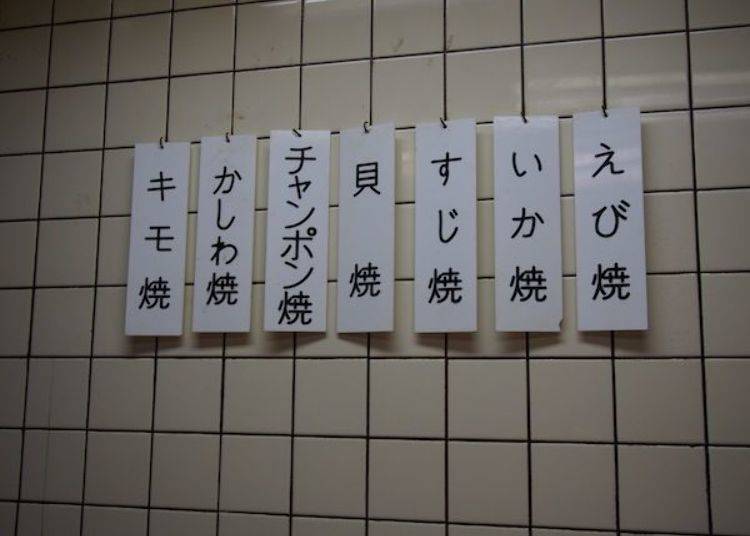 えび焼
いか焼
すじ焼
貝焼
チャンポン焼
かしわ焼
キモ焼